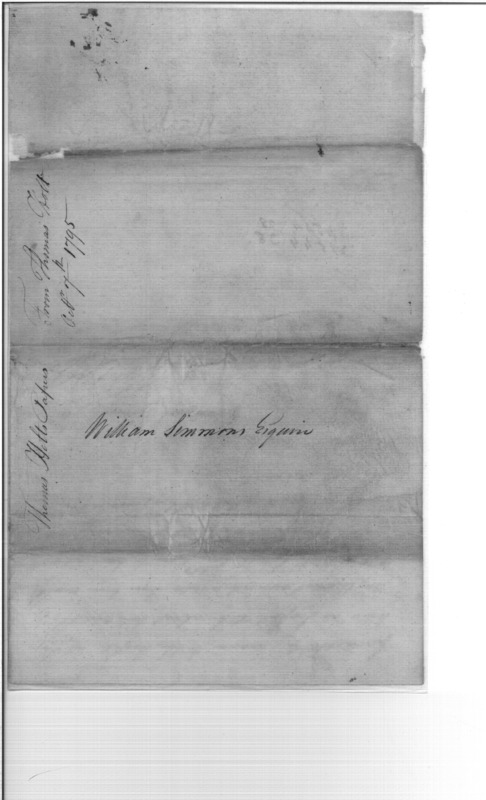 From Thomas Holt
Oct 7th 1795
Thomas Holts Papers
William Simmons Esquire